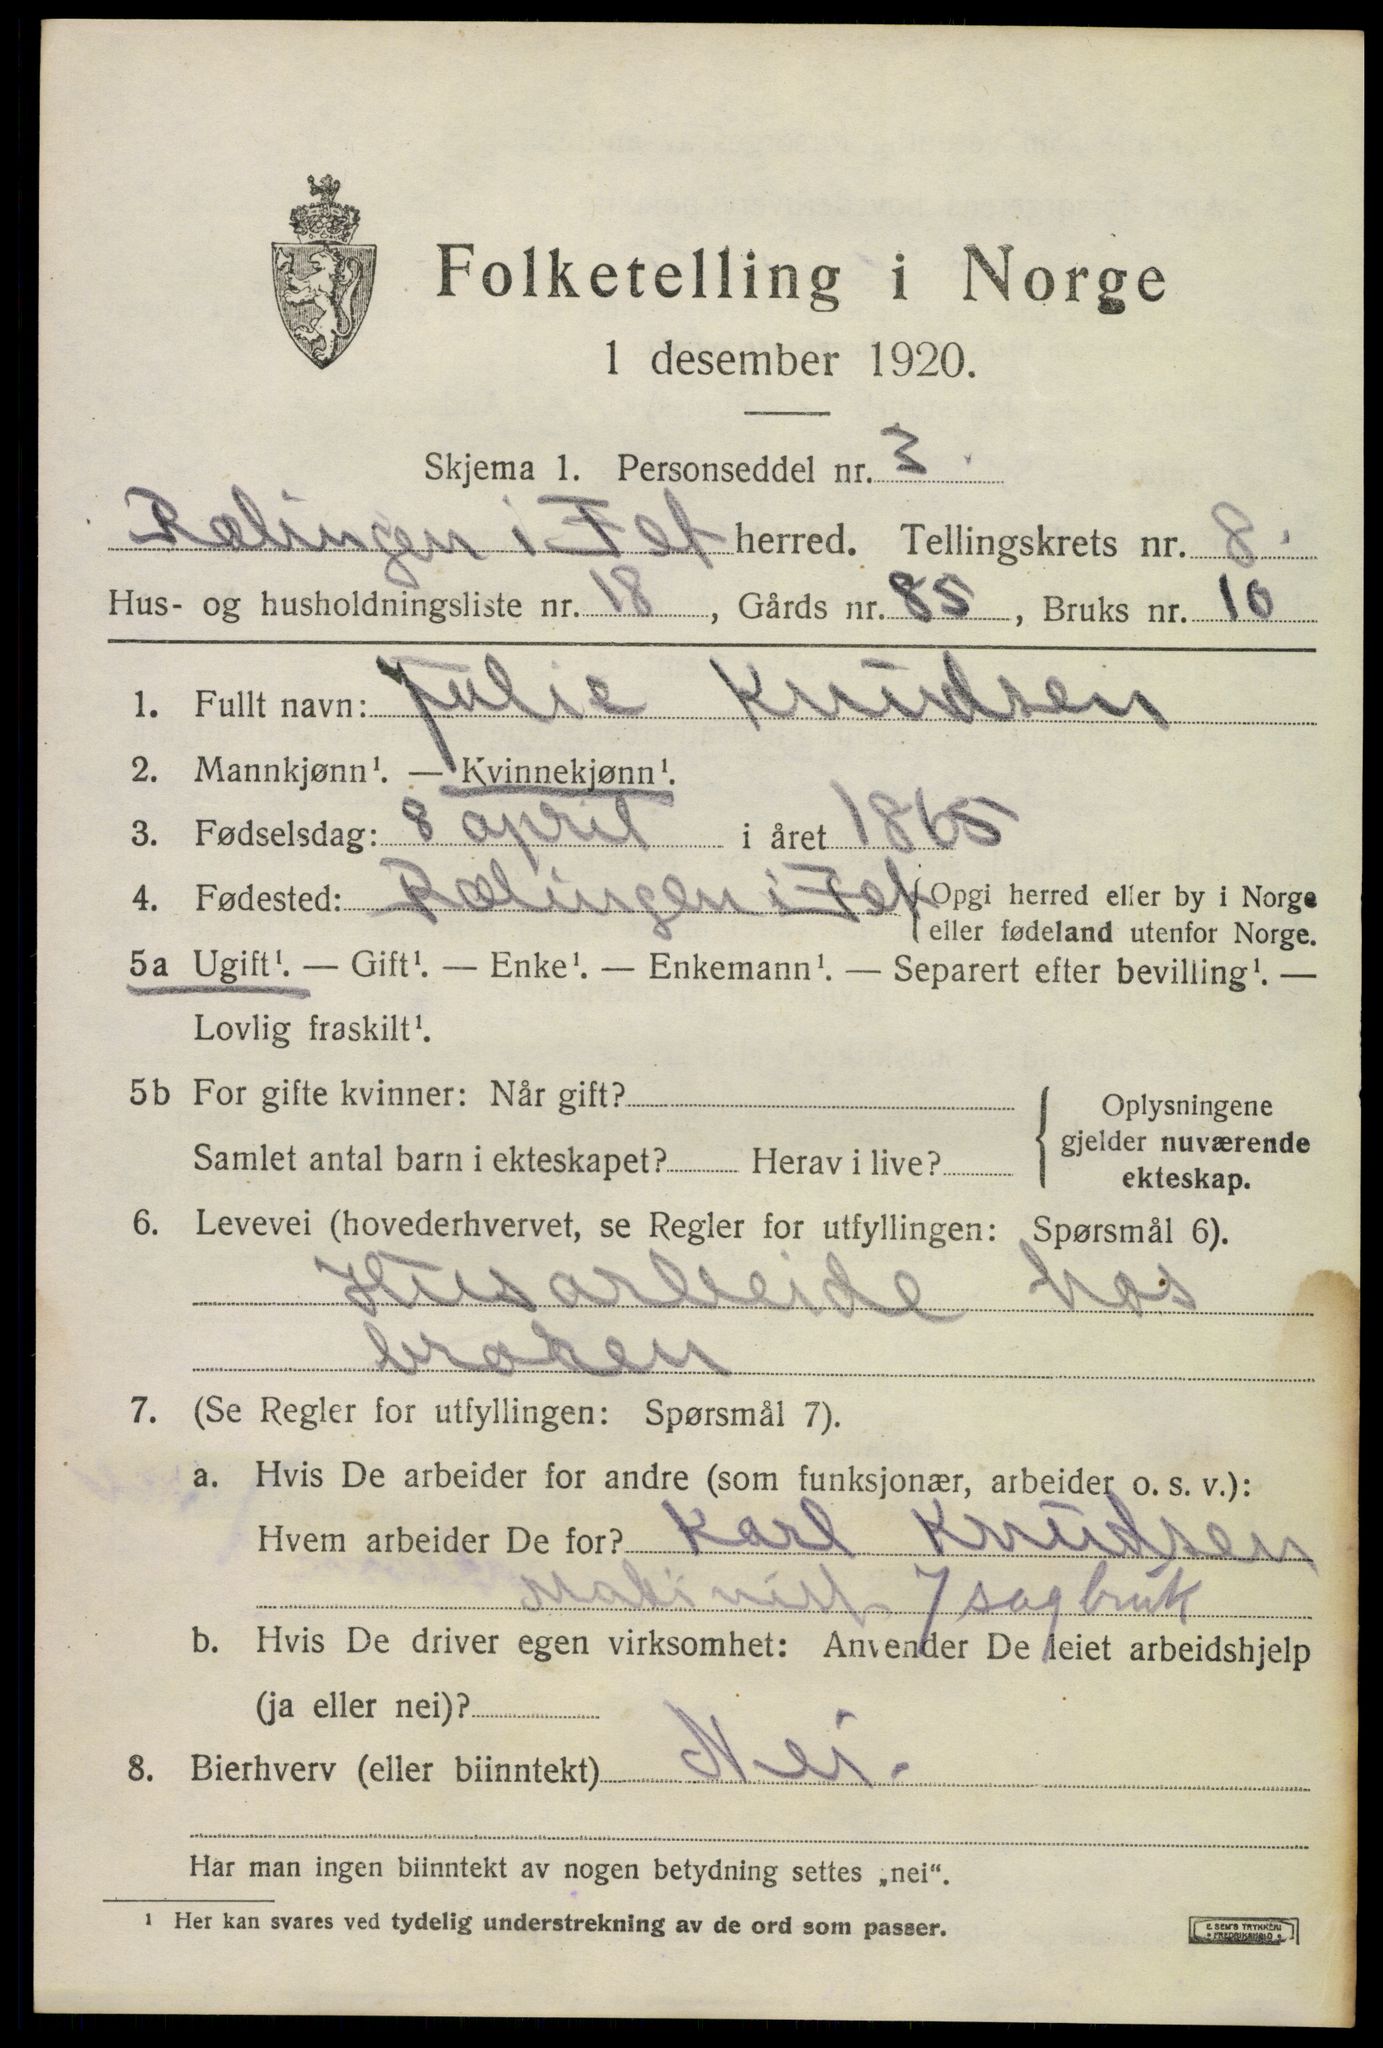 Folketelling i Norge
1 desember 1920.
Skjema 1. Personseddel nr. 3.
Rælingen i Fet herred. Tellingskrets nr. 8.
Hus- og husholdningsliste nr. 18, Gårds nr. 85, Bruks nr. 10
1. Fullt navn: Julie Knudsen
2. Mannkjønn¹. — Kvinnekjønn¹.
3. Fødselsdag: 8 april i året 1865
4. Fødested: Rælingen i Fet {Opgi herred eller by i Norge
eller fødeland utenfor Norge.
5a Ugift¹. — Gift¹. — Enke¹. — Enkemann¹. — Separert efter bevilling¹. —
Lovlig fraskilt¹.
5b For gifte kvinner: Når gift?
Samlet antal barn i ekteskapet? Herav i live?
Oplysningene
gjelder nuværende
ekteskap.
6. Levevei (hovederhvervet, se Regler for utfyllingen: Spørsmål 6).
Husarbeide hos
broren
7. (Se Regler for utfyllingen: Spørsmål 7).
a. Hvis De arbeider for andre (som funksjonær, arbeider o. s. v.):
Hvem arbeider De for? Karl Knudsen
sagbruk
b. Hvis De driver egen virksomhet: Anvender De leiet arbeidshjelp
(ja eller nei)?
8. Bierhverv (eller biinntekt) Nei.
Har man ingen biinntekt av nogen betydning settes „nei“.
¹ Her kan svares ved tydelig understrekning av de ord som passer.
E. SEM'S TRYKKERI
• FREDRIKSHALD •